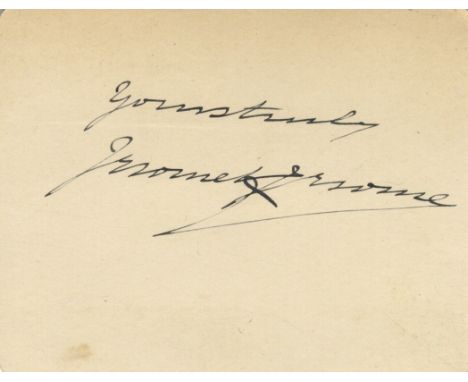 Yours truly
Jerome K Jerome